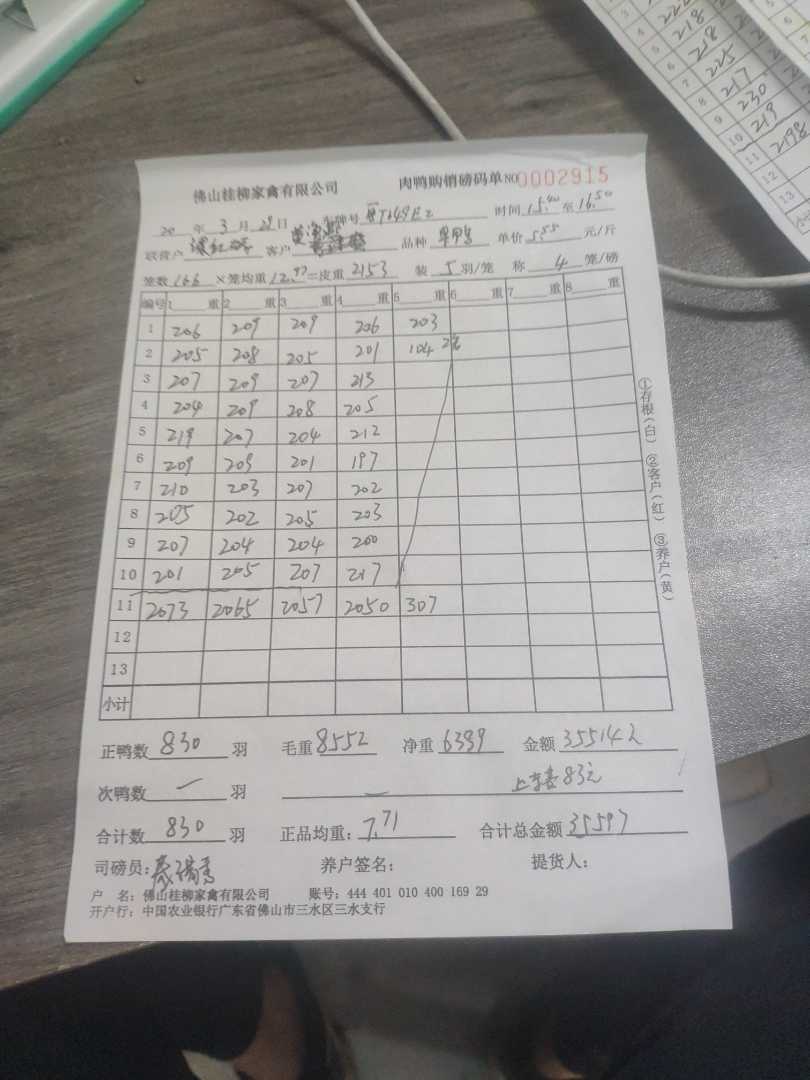 佛山桂柳家禽有限公司 肉鸭购销磅码单 NO 0002915
20 年 3 月 29 日 车牌号 时间 15:40 至 16:50
联营户 客户 品种 单价 5.55 元/斤
笼数 166 ×笼均重 12.97 =皮重 2153 装 5 羽/笼 称 4 笼/磅
编号 1 重 2 重 3 重 4 重 5 重 6 重 7 重 8 重
1 206 209 209 206 203
2 205 208 205 201 104 2笼
3 207 209 207 213
4 204 209 208 205
5 219 207 204 212
6 209 209 201 197
7 210 203 207 202
8 205 202 205 203
9 207 204 204 200
10 201 205 207 217
11 2073 2065 2057 2050 307
12
13
小计
正鸭数 830 羽 毛重 8552 净重 6399 金额 35514元
次鸭数 一 羽 83元
合计数 830 羽 正品均重: 7.71 合计总金额 35597
司磅员: 养户签名: 提货人:
户 名: 佛山桂柳家禽有限公司 账号: 444 401 010 400 169 29
开户行: 中国农业银行广东省佛山市三水区三水支行
①存根(白) ②客户(红) ③养户(黄)
218
218
225
217
230
219
2198